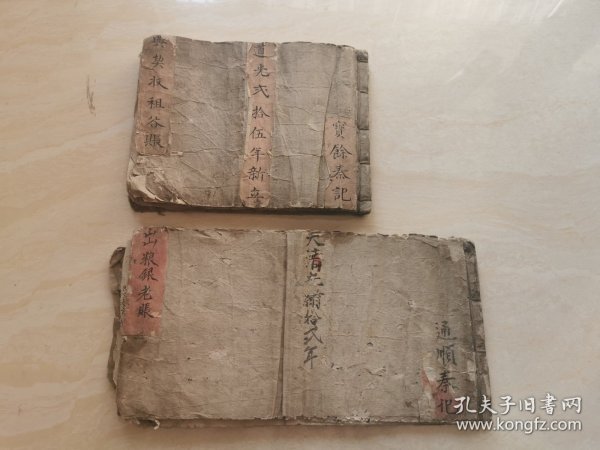 典契收租谷賬
道光弍拾伍年新立
寶餘泰記
出粮銀老賬
大清光緒拾弍年
通順泰記
孔夫子旧書网
www.kongfz.com